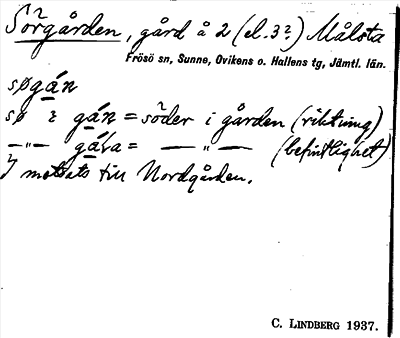 Sörgården, gård å 2 (el. 3?) Målsta
Frösö sn, Sunne, Ovikens o. Hallens tg, Jämtl. län.
søgán
sø i gán = söder i gården (riktning)
—"— gáɹa = —"— (befintlighet)
I motsats till Nordgården.
C. LINDBERG 1937.